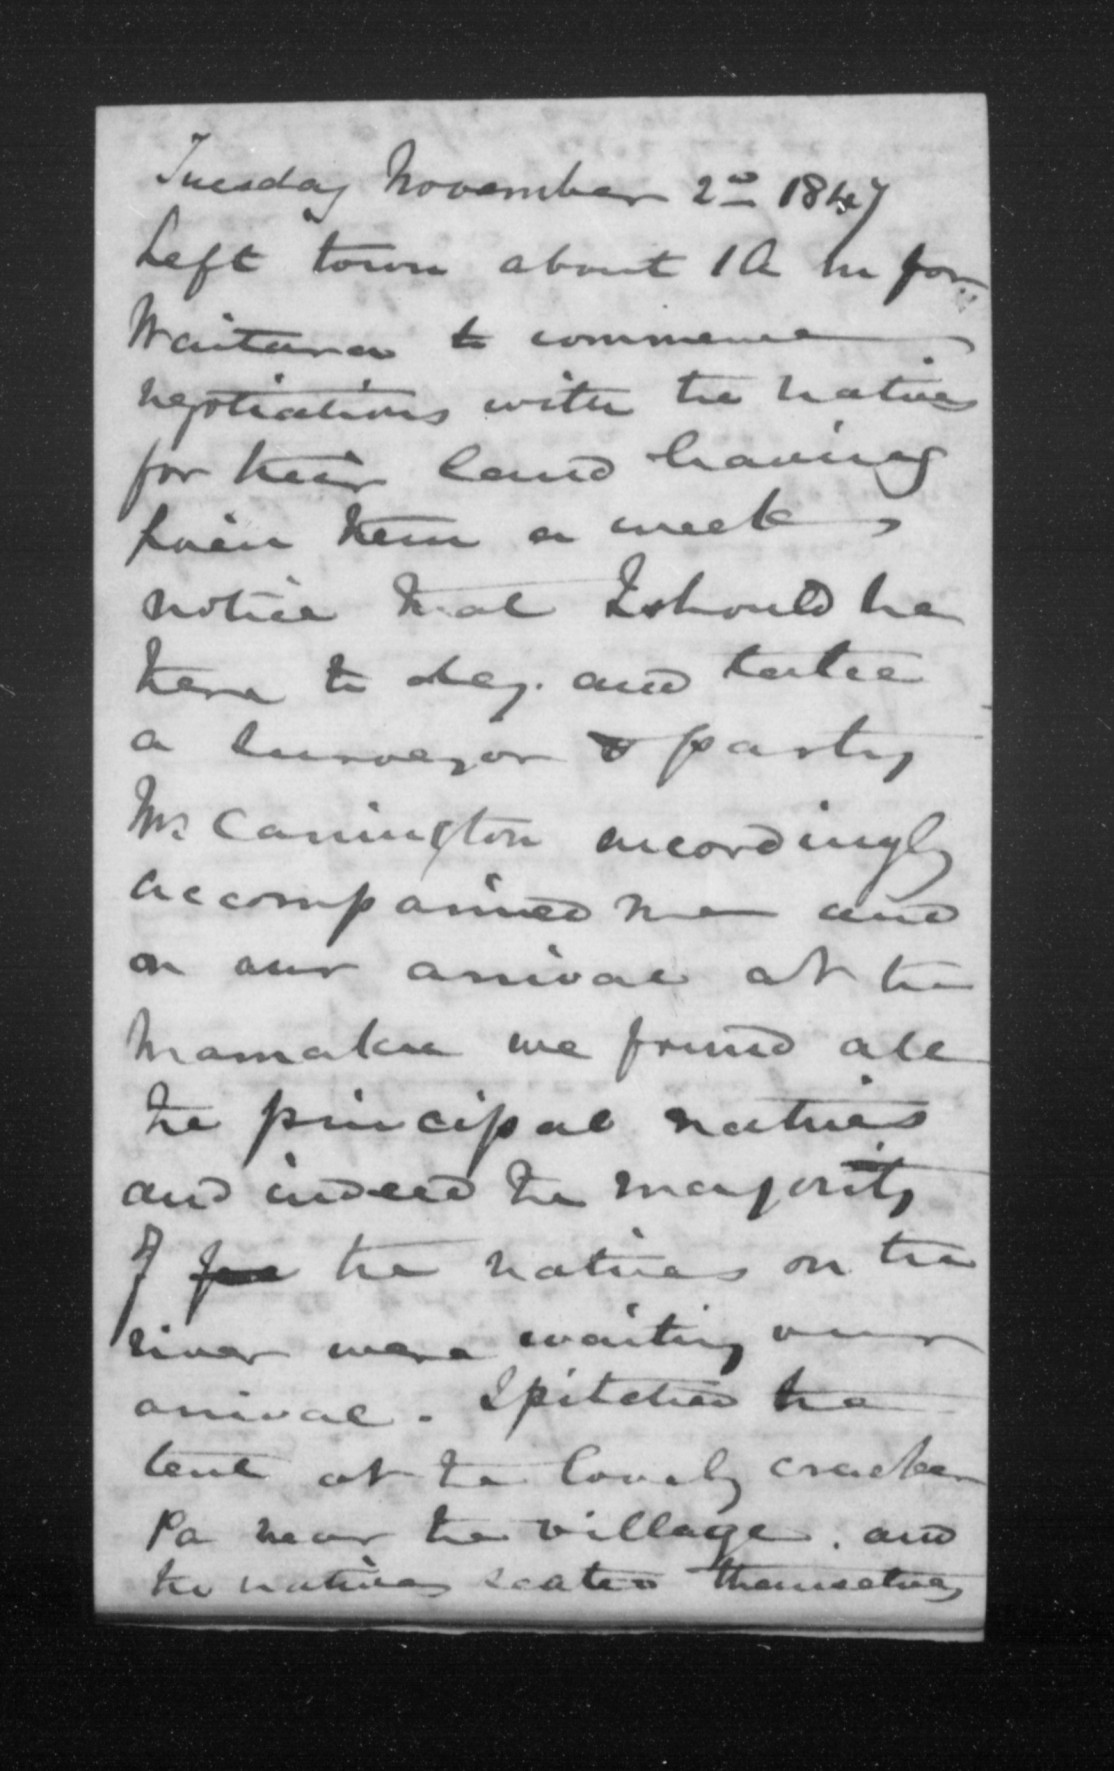 Tuesday November 2nd 1847
Left town about 1 A M for
Waitara to commence
negotiations with the natives
for their land having
given them a week
notice that I should be
there to day. and
a Surveyor & party
Mr Carrington accordingly
accompanied me and
on our arrival at the
Mamaku we found all
the principal natives
and indeed the majority
of the natives on the
river were waiting our
arrival. I pitched the
tent at the lonely
Pa near the village. and
the natives seated themselves